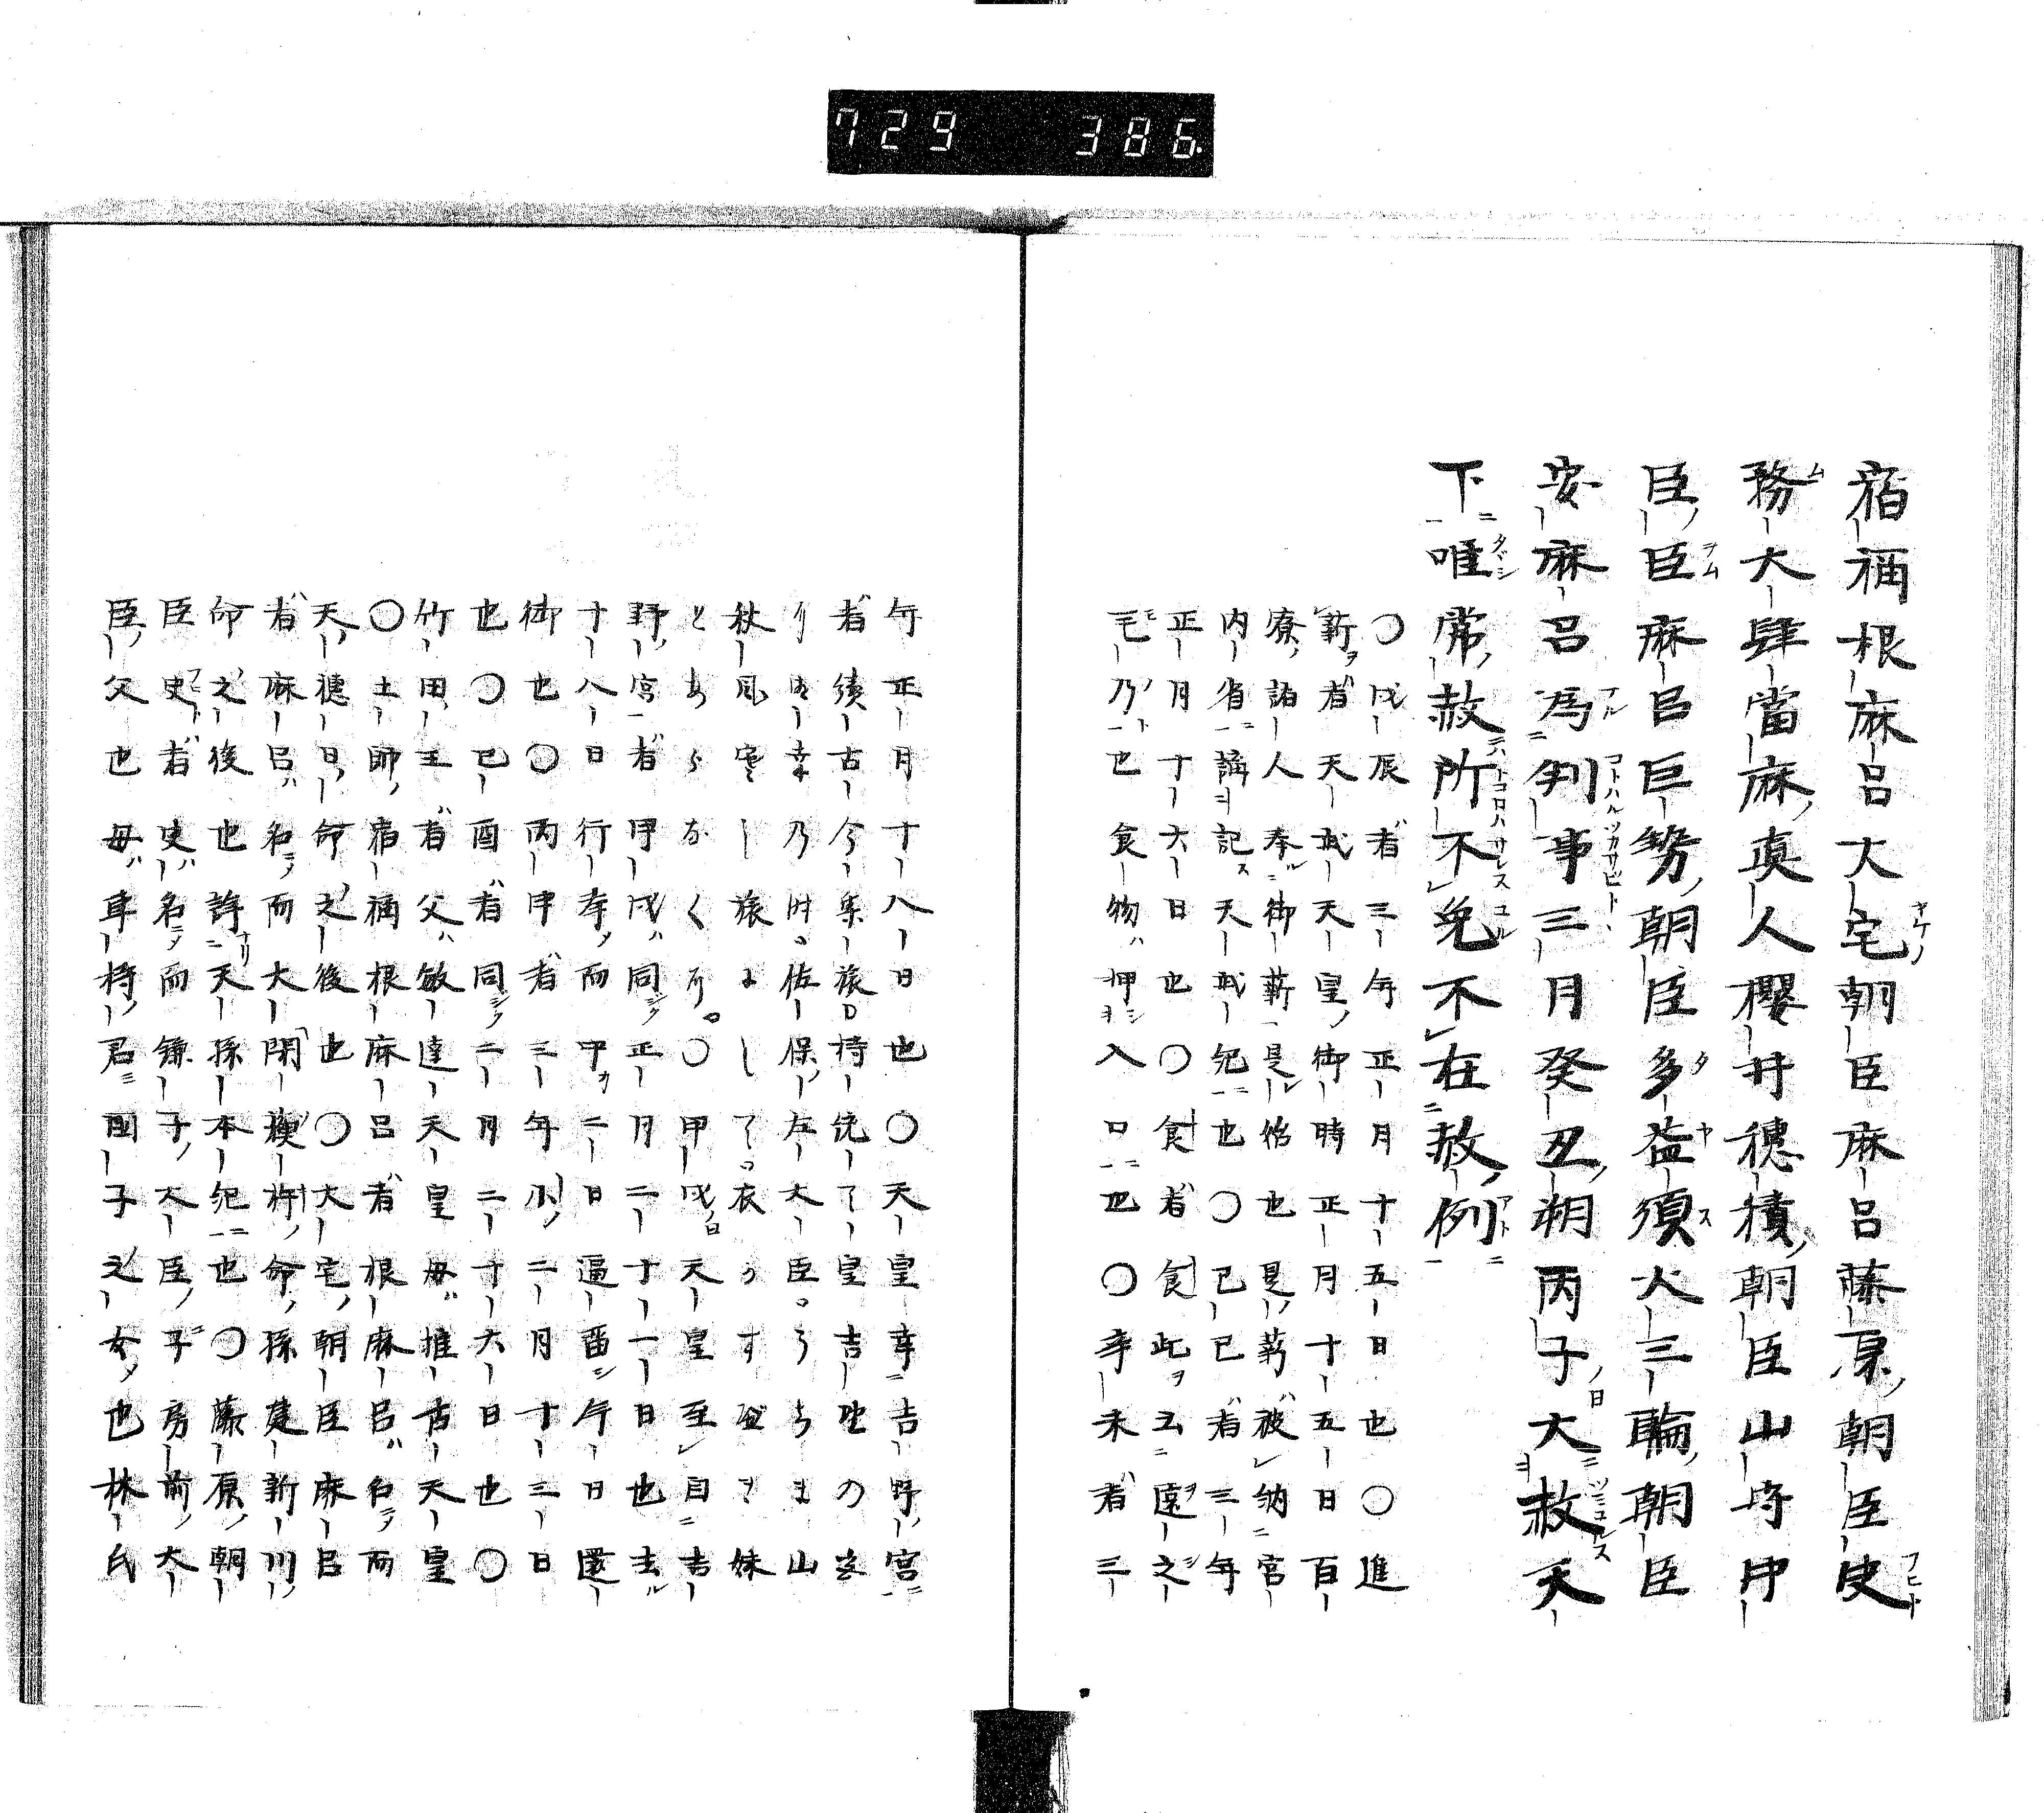 729 386
宿禰根麻呂大宅朝臣麻呂藤原朝臣史
務大肆當麻真人櫻井穂積朝臣山守中
臣臣麻呂巨勢朝臣多益須大三輪朝臣
安麻呂為判事三月癸丑朔丙子大赦天
下唯常赦所不免不在赦例
〇戊辰者三年正月十五日也〇進
薪者天武天皇御時正月十五日百
寮諸人奉御薪是始也是薪被納宮
内省諸記天武紀也〇己巳者三年
正月十六日也〇食者食此云遠之
毛乃也食物押入口也〇辛未者三
年正月十八日也〇天皇幸吉野宮
者續古今集旅持統天皇吉野の宮
秋風寒し旅
とあらなくに〇甲戌日天皇至自吉
野宮者甲戌同正月二十一日也去
十八日行幸而中二日逼留今日還
御也〇丙申者三年小二月十三日
也〇己酉者同二月二十六日也〇
竹田王者父敏達天皇母推古天皇
〇土師宿禰根麻呂者根麻呂名而
天穂日命之後也〇大宅朝臣麻呂
者麻呂名而大閇糠杵命孫建新川
命之後也詳天孫本紀也〇藤原朝
臣史者史名而鎌子大臣子房前大
臣父也母車持君國子之女也林氏